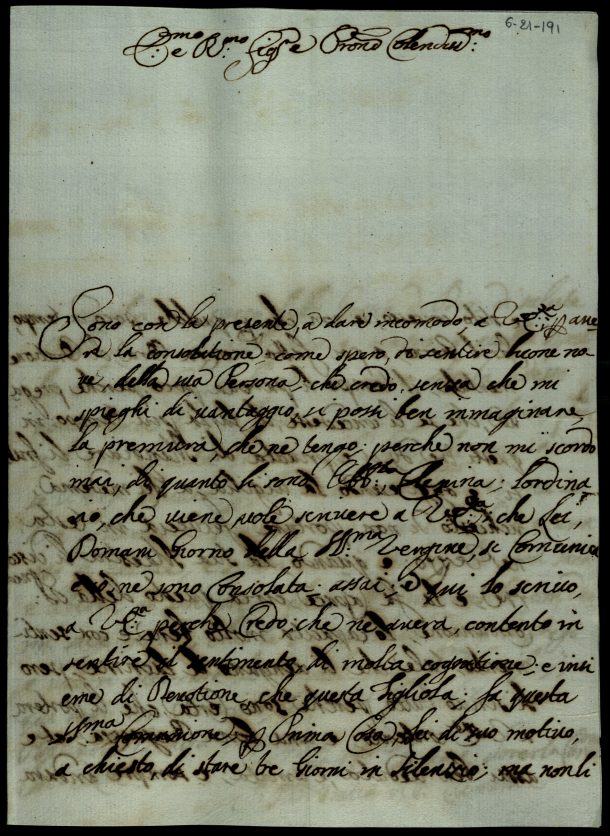 6-21-191
Em.mo e R.mo Sig.r e Prone Colendiss.mo
Sono con la presente, a dare incomodo, a V. E.za p ave
re la consolatione, come spero, di sentire buone no
ve, della sua Persona, che credo, senza che mi
spieghi di vantaggio, si possi ben immaginare,
la premura, che ne tengo; perche non mi scordo
mai, di quanto li sono Obb.ta, Clemina; l'ordina
rio, che viene, vole scrivere a V. E.za; che lei,
Domani Giorno della SS.ma Vergine, si Comunica
ne sono Consolata assai; e qui lo scrivo,
a V. E.za, perche Credo, che ne avera, contento in
sentire il sentimento, di molta cognitione, e insi
eme di Devotione, che questa figliola. fa questa
SS.ma Comunione, p Prima Cosa, lei di suo motivo,
a chiesto, di stare tre Giorni in silenzio; ma non li